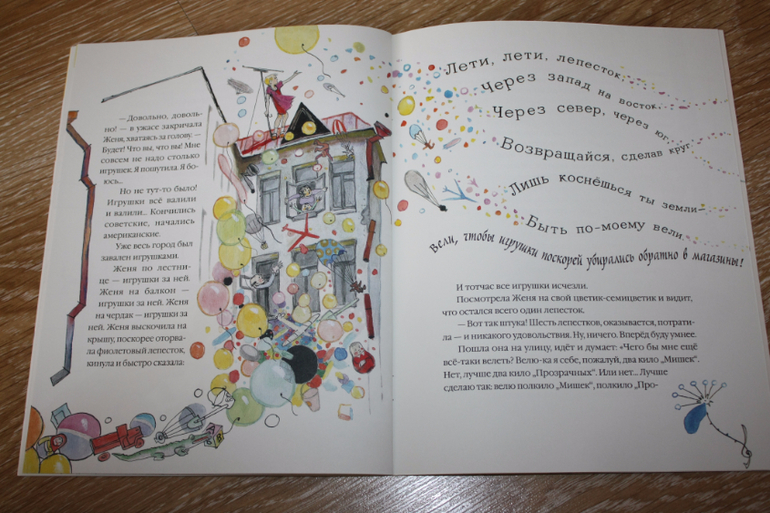 — Довольно, доволь-
но! — в ужасе закричала
Женя, хватаясь за голову. —
Будет! Что вы, что вы! Мне
совсем не надо столько
игрушек. Я пошутила. Я бо-
юсь...
Но не тут-то было!
Игрушки всё валили
и валили... Кончились
советские, начались
американские.
Уже весь город был
завален игрушками.
Женя по лестни-
це — игрушки за ней.
Женя на балкон —
игрушки за ней. Женя
на чердак — игрушки за
ней. Женя выскочила на
крышу, поскорее оторва-
ла фиолетовый лепесток,
кинула и быстро сказала:
Лети, лети, лепесток,
Через запад на восток,
Через север, через юг,
Возвращайся, сделав круг.
Лишь коснёшься ты земли —
Быть по-моему вели.
Вели, чтобы игрушки поскорей убирались обратно в магазины!
И тотчас все игрушки исчезли.
Посмотрела Женя на свой цветик-семицветик и видит,
что остался всего один лепесток.
— Вот так штука! Шесть лепестков, оказывается, потрати-
ла — и никакого удовольствия. Ну, ничего. Вперёд буду умнее.
Пошла она на улицу, идёт и думает: «Чего бы мне ещё
всё-таки велеть? Велю-ка я себе, пожалуй, два кило „Мишек“.
Нет, лучше два кило „Прозрачных“. Или нет... Лучше
сделаю так: велю полкило „Мишек“, полкило „Про-